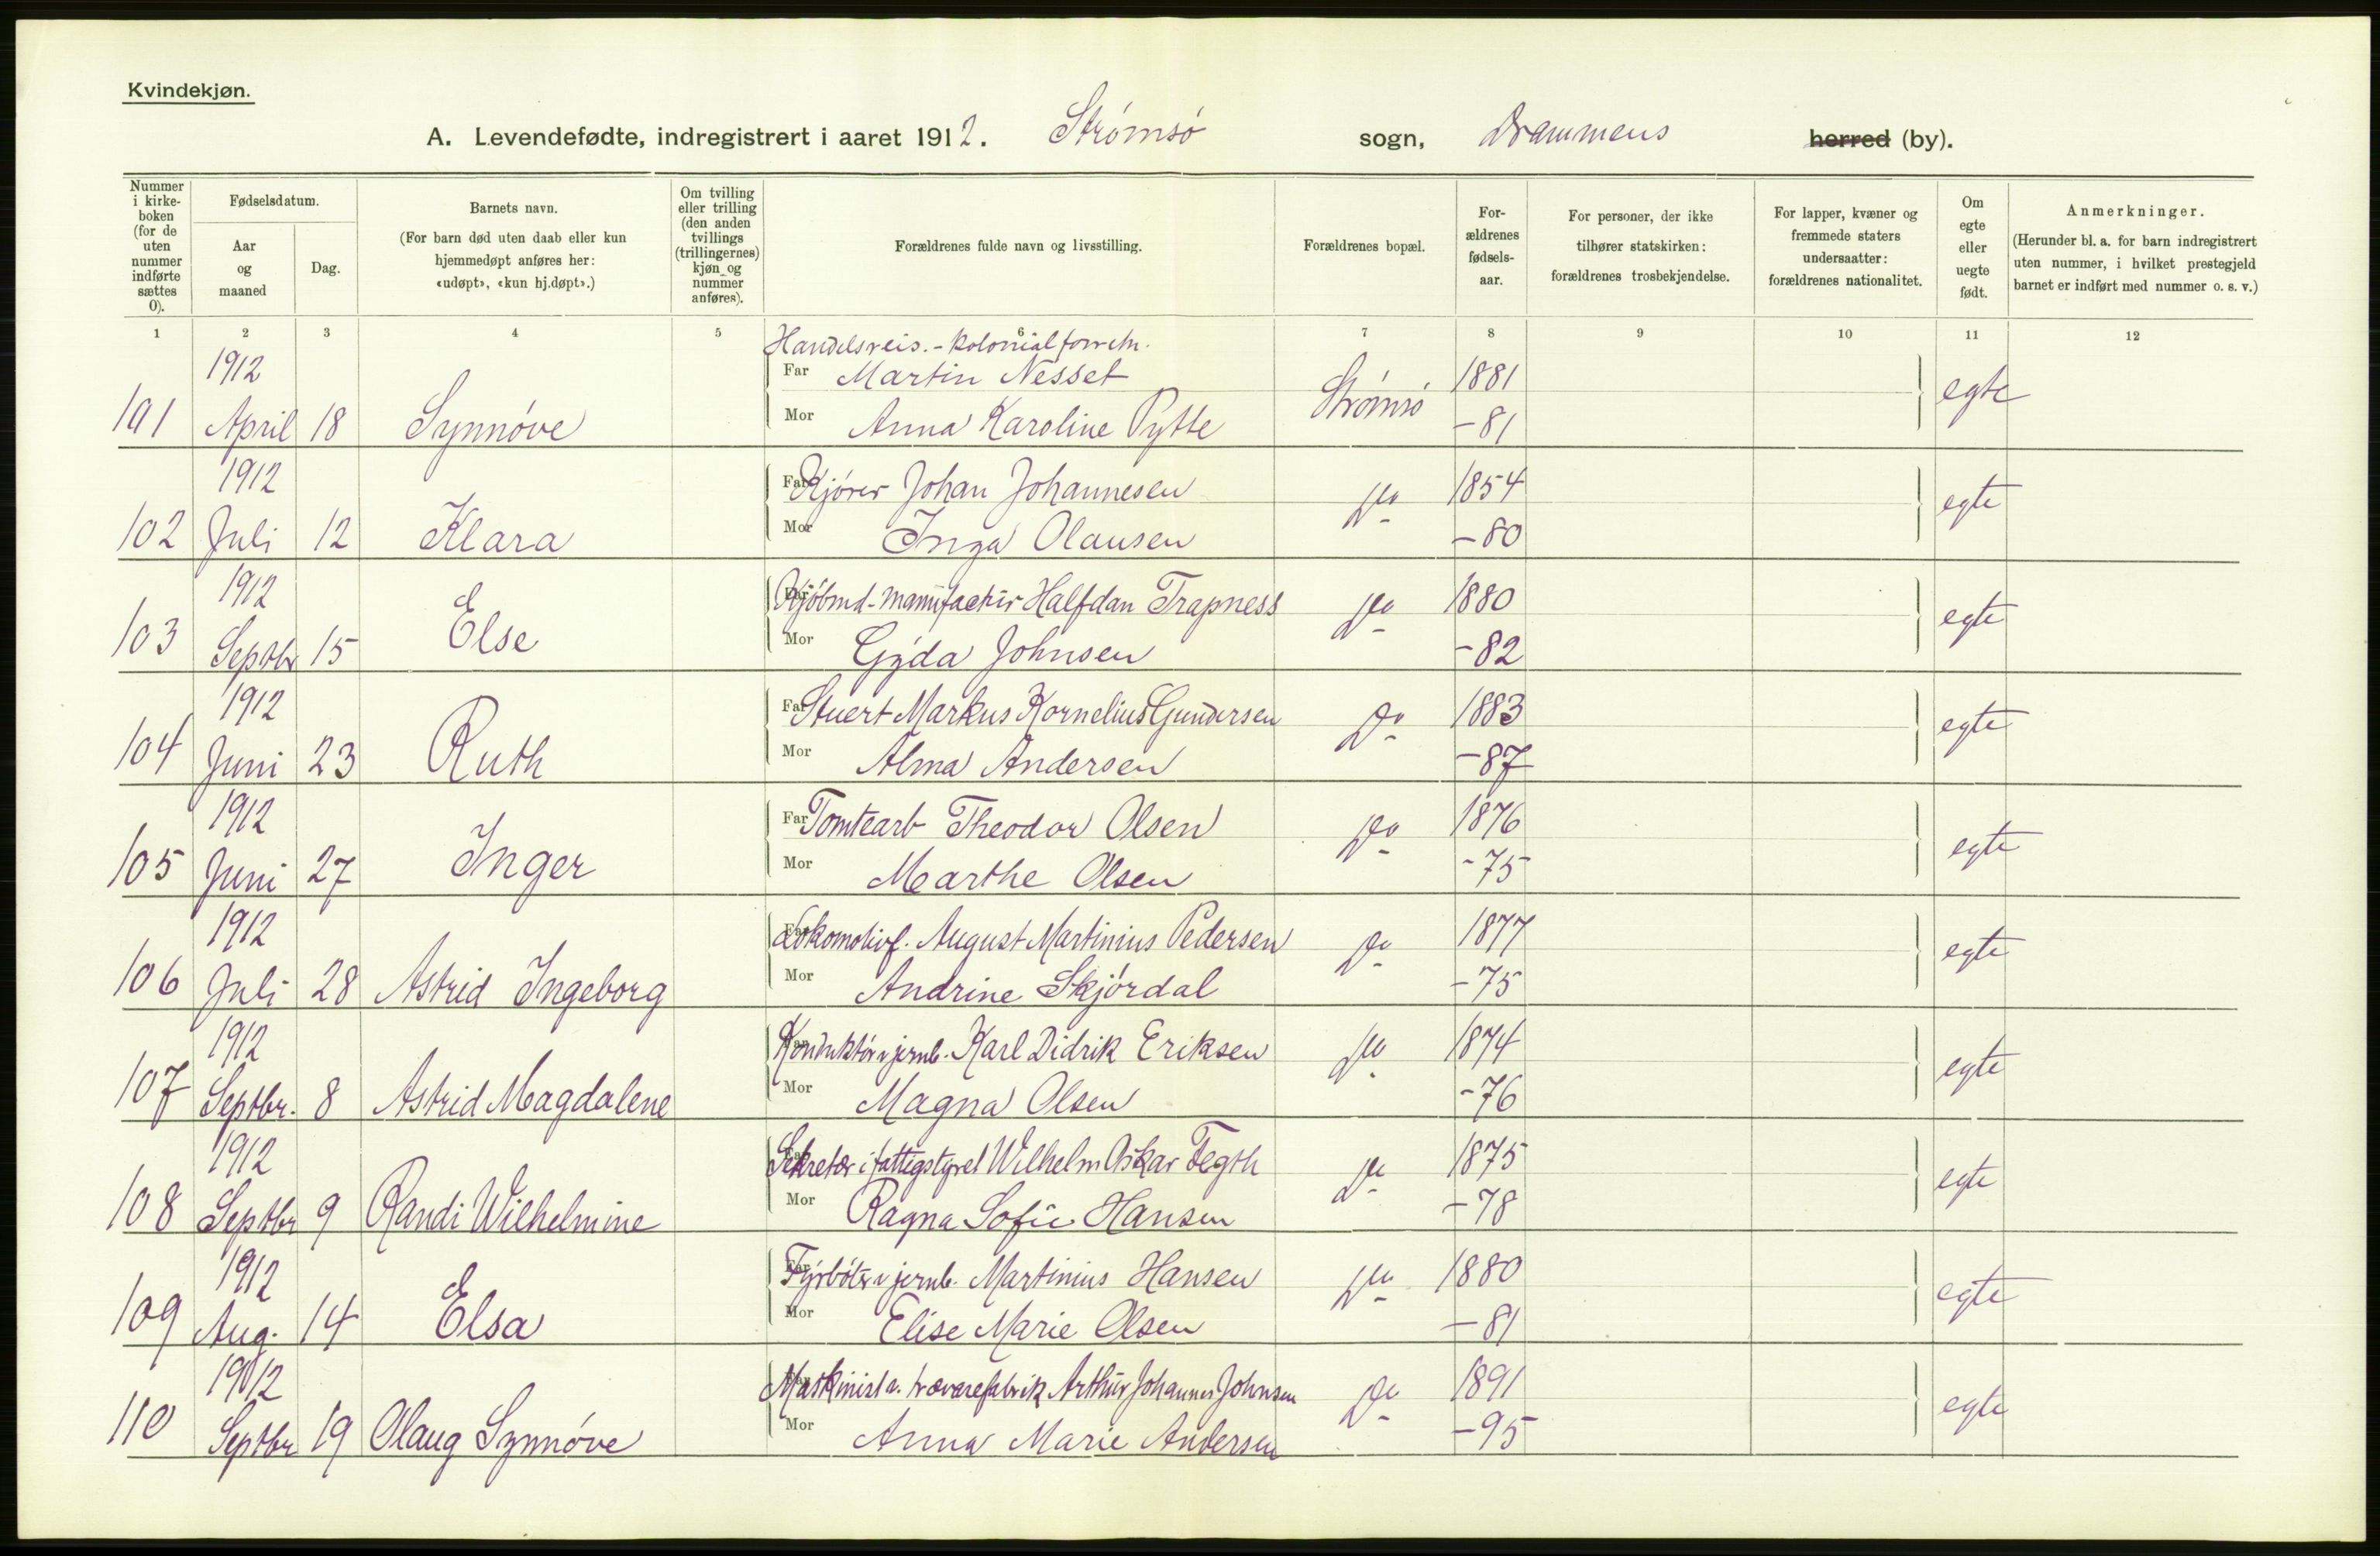 Kvindekjøn.
A. Levendefødte, indregistrert i aaret 1912. Strømsø sogn, Drammens herred (by).
Nummer i kirke-boken (for de uten nummer indførte sættes 0).
Fødselsdatum.
Aar og maaned
Dag.
Barnets navn.
(For barn død uten daab eller kun hjemmedøpt anføres her: «udøpt», «kun hj.døpt».)
Om tvilling eller trilling (den anden tvillings (trillingernes) kjøn og nummer anføres).
Forældrenes fulde navn og livsstilling.
Forældrenes bopæl.
For-ældrenes fødsels-aar.
For personer, der ikke tilhører statskirken: forældrenes trosbekjendelse.
For lapper, kvæner og fremmede staters undersaatter: forældrenes nationalitet.
Om egte eller uegte født.
Anmerkninger.
(Herunder bl. a. for barn indregistrert uten nummer, i hvilket prestegjeld barnet er indført med nummer o. s. v.)
1 2 3 4 5 6 7 8 9 10 11 12
Handelsreis. - Kolonialforretn.
1912 Far Martin Nesset Strømsø 1881 egte
101 April 18 Synnøve Mor Anna Karoline Pytte -81
1912 Far Kjører Johan Johannesen Do 1854 egte
102 Juli 12 Klara Mor Inga Olausen -80
1912 Far Kjøbmd-manufactur Halfdan Trapness Do 1880 egte
103 Septbr 15 Else Mor Gyda Johnsen -82
1912 Far Stuert Markus Kornelius Gundersen Do 1883 egte
104 Juni 23 Ruth Mor Alma Andersen -87
1912 Far Tomtearb Theodor Olsen Do 1876 egte
105 Juni 27 Inger Mor Marthe Olsen -75
1912 Far Lokomotivf. August Martinius Pedersen Do 1877 egte
106 Juli 28 Astrid Ingeborg Mor Andrine Skjørdal -75
1912 Far Konduktør v jernb. Karl Didrik Eriksen Do 1874 egte
107 Septbr. 8 Astrid Magdalene Mor Magna Olsen -76
1912 Far Sekretær i fattigstyret Wilhelm Oskar Tegth Do 1875 egte
108 Septbr 9 Randi Wilhelmine Mor Ragna Sofie Hansen -78
1912 Far Fyrbøter v jernb. Martinius Hansen Do 1880 egte
109 Aug. 14 Elsa Mor Elise Marie Olsen -81
1912 Far Maskinist v. trævarefabrik Arthur Johannes Johnsen Do 1891 egte
110 Septbr 19 Olaug Synnøve Mor Anna Marie Andersen -95